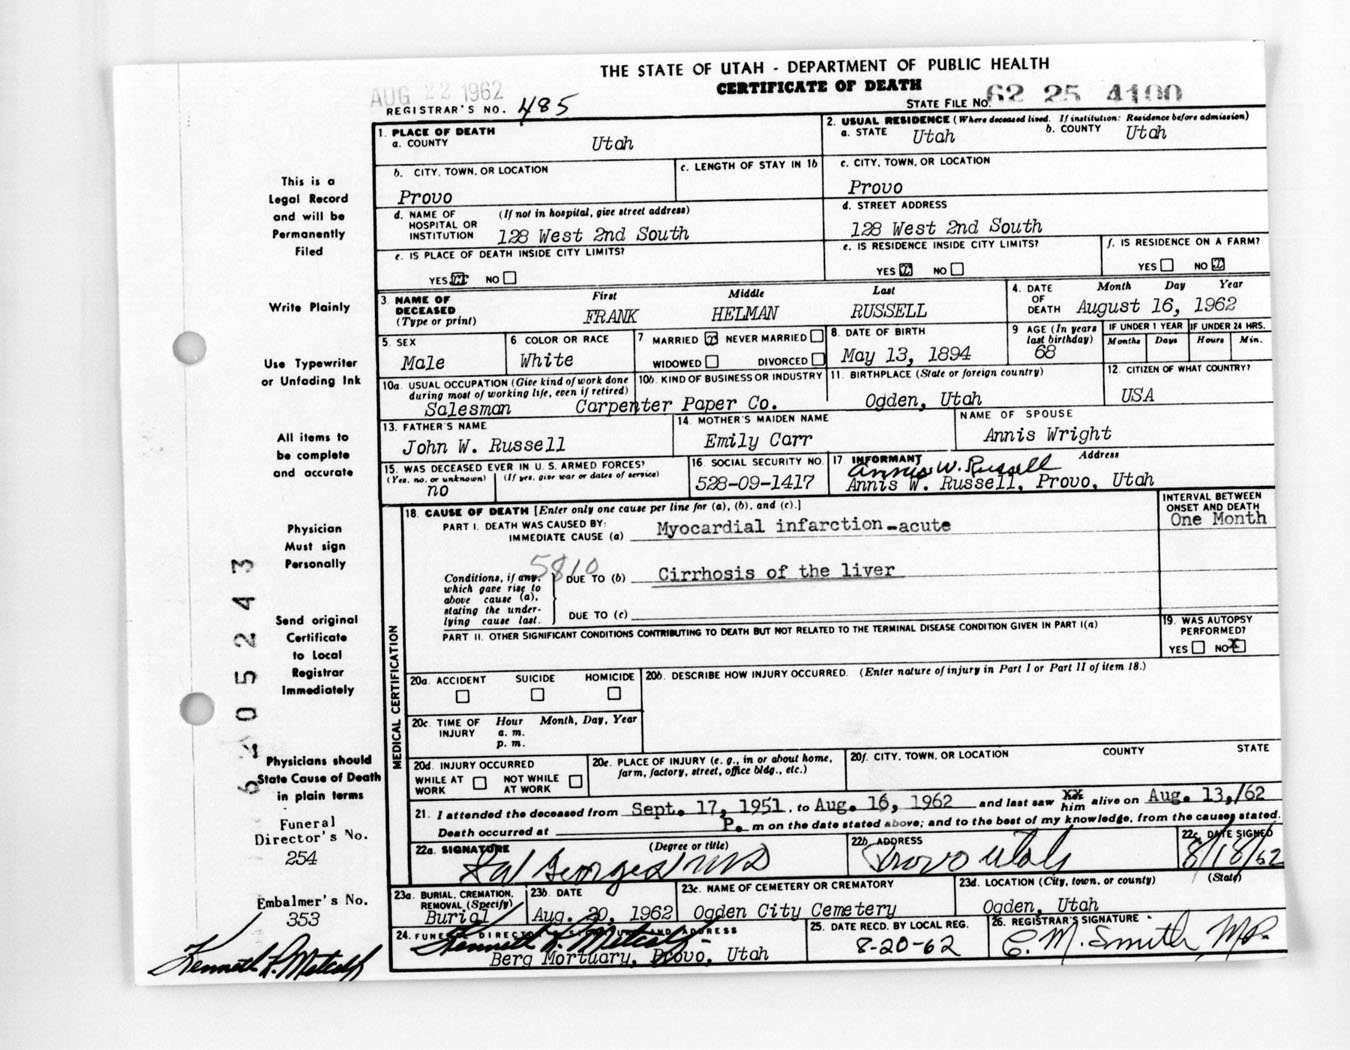 THE STATE OF UTAH - DEPARTMENT OF PUBLIC HEALTH
CERTIFICATE OF DEATH
AUG 22 1962
REGISTRAR'S NO. 485
STATE FILE NO. 62 25 4100
This is a
Legal Record
and will be
Permanently
Filed
Write Plainly
Use Typewriter
or Unfading Ink
All items to
be complete
and accurate
Physician
Must sign
Personally
Send original
Certificate
to Local
Registrar
Immediately
Physicians should
State Cause of Death
in plain terms
Funeral
Director's No.
254
Embalmer's No.
353
Kenneth L. Metcalf
6205243
1. PLACE OF DEATH
a. COUNTY Utah
2. USUAL RESIDENCE (Where deceased lived. If institution: Residence before admission)
a. STATE Utah b. COUNTY Utah
b. CITY, TOWN, OR LOCATION
Provo
c. LENGTH OF STAY IN 1b
c. CITY, TOWN, OR LOCATION
Provo
d. NAME OF HOSPITAL OR INSTITUTION (If not in hospital, give street address)
128 West 2nd South
d. STREET ADDRESS
128 West 2nd South
e. IS PLACE OF DEATH INSIDE CITY LIMITS?
YES NO
e. IS RESIDENCE INSIDE CITY LIMITS?
YES NO
f. IS RESIDENCE ON A FARM?
YES NO
3. NAME OF DECEASED (Type or print)
First Middle Last
FRANK HELMAN RUSSELL
4. DATE OF DEATH Month Day Year
August 16, 1962
5. SEX
Male
6 COLOR OR RACE
White
7 MARRIED NEVER MARRIED
WIDOWED DIVORCED
8. DATE OF BIRTH
May 13, 1894
9 AGE (In years last birthday)
68
IF UNDER 1 YEAR IF UNDER 24 HRS.
Months Days Hours Min.
10a. USUAL OCCUPATION (Give kind of work done during most of working life, even if retired)
Salesman
10b. KIND OF BUSINESS OR INDUSTRY
Carpenter Paper Co.
11. BIRTHPLACE (State or foreign country)
Ogden, Utah
12. CITIZEN OF WHAT COUNTRY?
USA
13. FATHER'S NAME
John W. Russell
14. MOTHER'S MAIDEN NAME
Emily Carr
NAME OF SPOUSE
Annis Wright
15. WAS DECEASED EVER IN U.S. ARMED FORCES?
(Yes, no, or unknown) (If yes, give war or dates of service)
no
16. SOCIAL SECURITY NO.
528-09-1417
17 INFORMANT Address
Annis W. Russell
Annis W. Russell, Provo, Utah
MEDICAL CERTIFICATION
18. CAUSE OF DEATH [Enter only one cause per line for (a), (b), and (c).]
PART I. DEATH WAS CAUSED BY:
IMMEDIATE CAUSE (a) Myocardial infarction-acute
INTERVAL BETWEEN ONSET AND DEATH
One Month
5810
Conditions, if any, which gave rise to above cause (a), stating the underlying cause last.
DUE TO (b) Cirrhosis of the liver
DUE TO (c)
PART II. OTHER SIGNIFICANT CONDITIONS CONTRIBUTING TO DEATH BUT NOT RELATED TO THE TERMINAL DISEASE CONDITION GIVEN IN PART I(a)
19. WAS AUTOPSY PERFORMED?
YES NO X
20a. ACCIDENT SUICIDE HOMICIDE
20b. DESCRIBE HOW INJURY OCCURRED. (Enter nature of injury in Part I or Part II of item 18.)
20c. TIME OF INJURY Hour Month, Day, Year
a. m.
p. m.
20d. INJURY OCCURRED
WHILE AT WORK NOT WHILE AT WORK
20e. PLACE OF INJURY (e. g., in or about home, farm, factory, street, office bldg., etc.)
20f. CITY, TOWN, OR LOCATION COUNTY STATE
21. I attended the deceased from Sept. 17, 1951, to Aug. 16, 1962 and last saw xx him alive on Aug. 13,/62
Death occurred at P. m on the date stated above; and to the best of my knowledge, from the causes stated.
22a. SIGNATURE (Degree or title)
Georges MD
22b. ADDRESS
Provo Utah
22c. DATE SIGNED
8/18/62
23a. BURIAL, CREMATION, REMOVAL (Specify)
Burial
23b. DATE
Aug. 20, 1962
23c. NAME OF CEMETERY OR CREMATORY
Ogden City Cemetery
23d. LOCATION (City, town, or county) (State)
Ogden, Utah
24. FUNERAL DIRECTOR'S SIGNATURE AND ADDRESS
Kenneth L. Metcalf
Berg Mortuary, Provo, Utah
25. DATE RECD. BY LOCAL REG.
8-20-62
26. REGISTRAR'S SIGNATURE
C. M. Smith, MD.